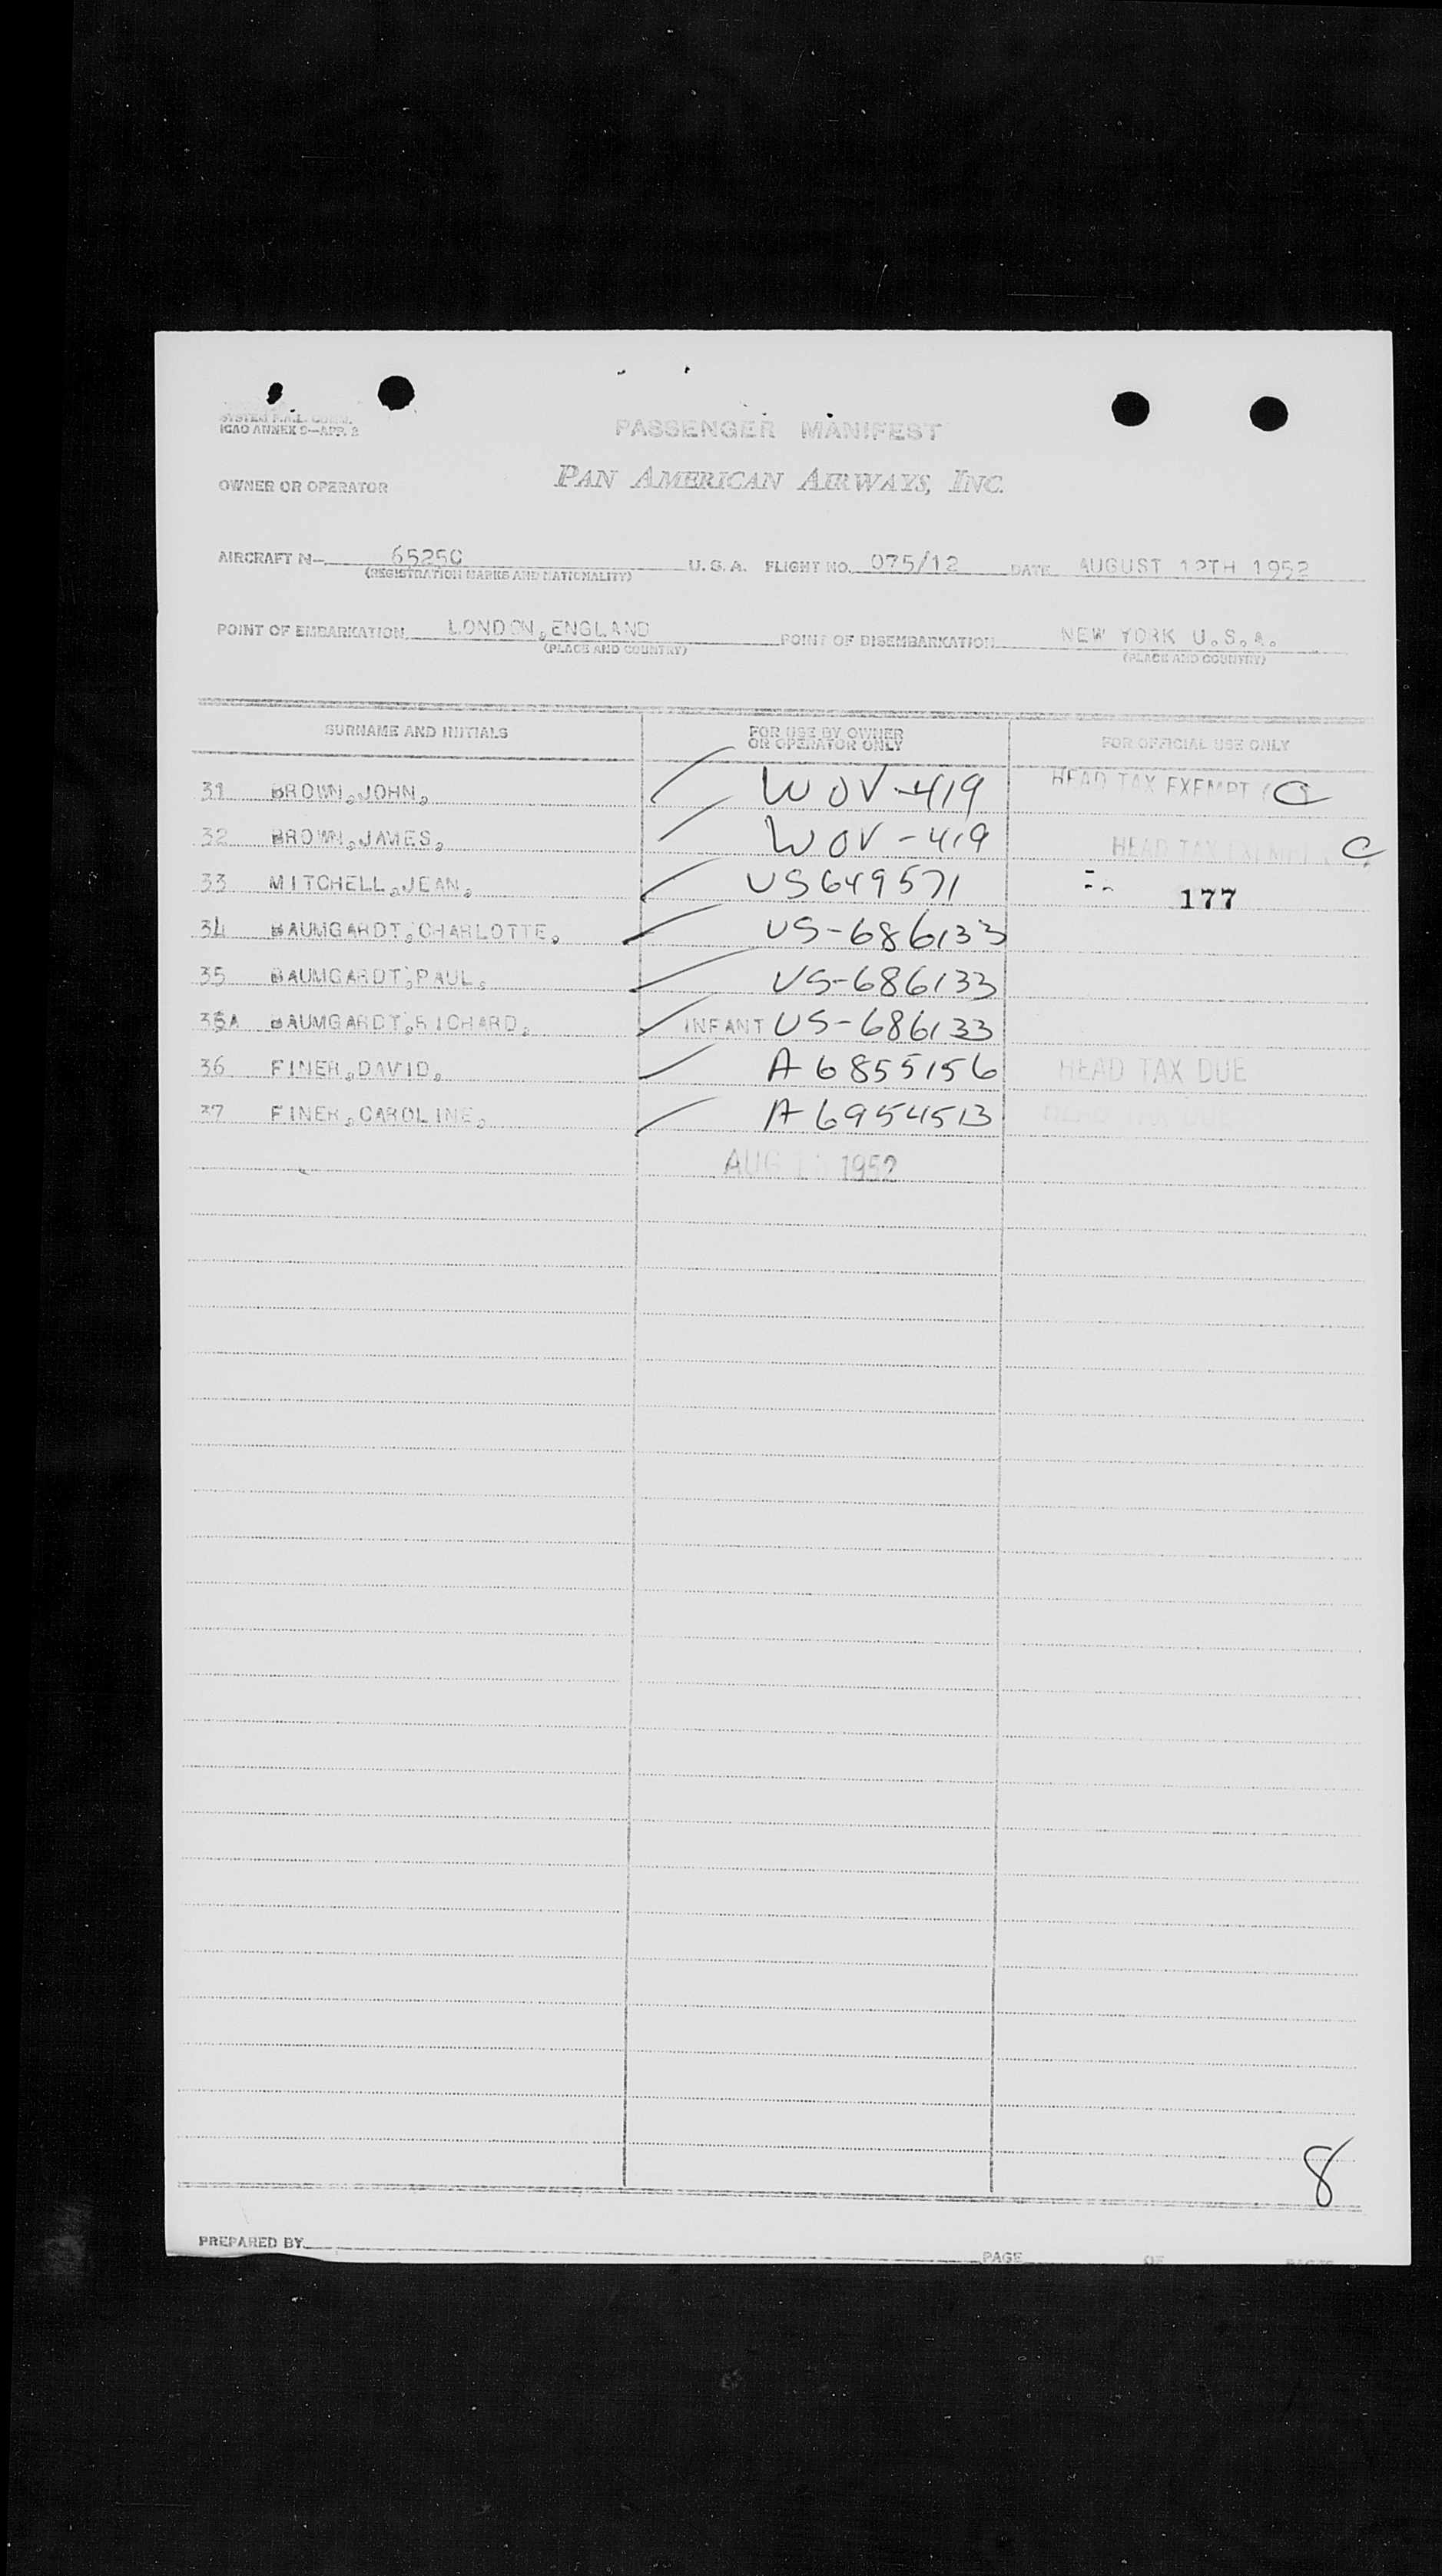 SYSTEM P.A.L. 
ICAO ANNEX 9—APP. 2
PASSENGER MANIFEST
OWNER OR OPERATOR PAN AMERICAN AIRWAYS, INC.
AIRCRAFT N- 6525C U.S.A. FLIGHT NO. 075/12 DATE AUGUST 12TH 1952
(REGISTRATION MARKS AND NATIONALITY)
POINT OF EMBARKATION LONDON,ENGLAND POINT OF DISEMBARKATION NEW YORK U.S.A.
(PLACE AND COUNTRY) (PLACE AND COUNTRY)
SURNAME AND INITIALS FOR USE BY OWNER OR OPERATOR ONLY FOR OFFICIAL USE ONLY
31 BROWN,JOHN, WOV-419 HEAD TAX EXEMPT C
32 BROWN,JAMES, WOV-419 HEAD TAX EXEMPT C
33 MITCHELL,JEAN, US649571 177
34 BAUMGARDT,CHARLOTTE, US-686133
35 BAUMGARDT,PAUL, US-686133
35A BAUMGARDT,RICHARD, INFANT US-686133
36 FINER,DAVID, A6855156 HEAD TAX DUE
37 FINER,CAROLINE, A6954513 HEAD TAX DUE
AUG 1952
8
PREPARED BY PAGE OF PAGES